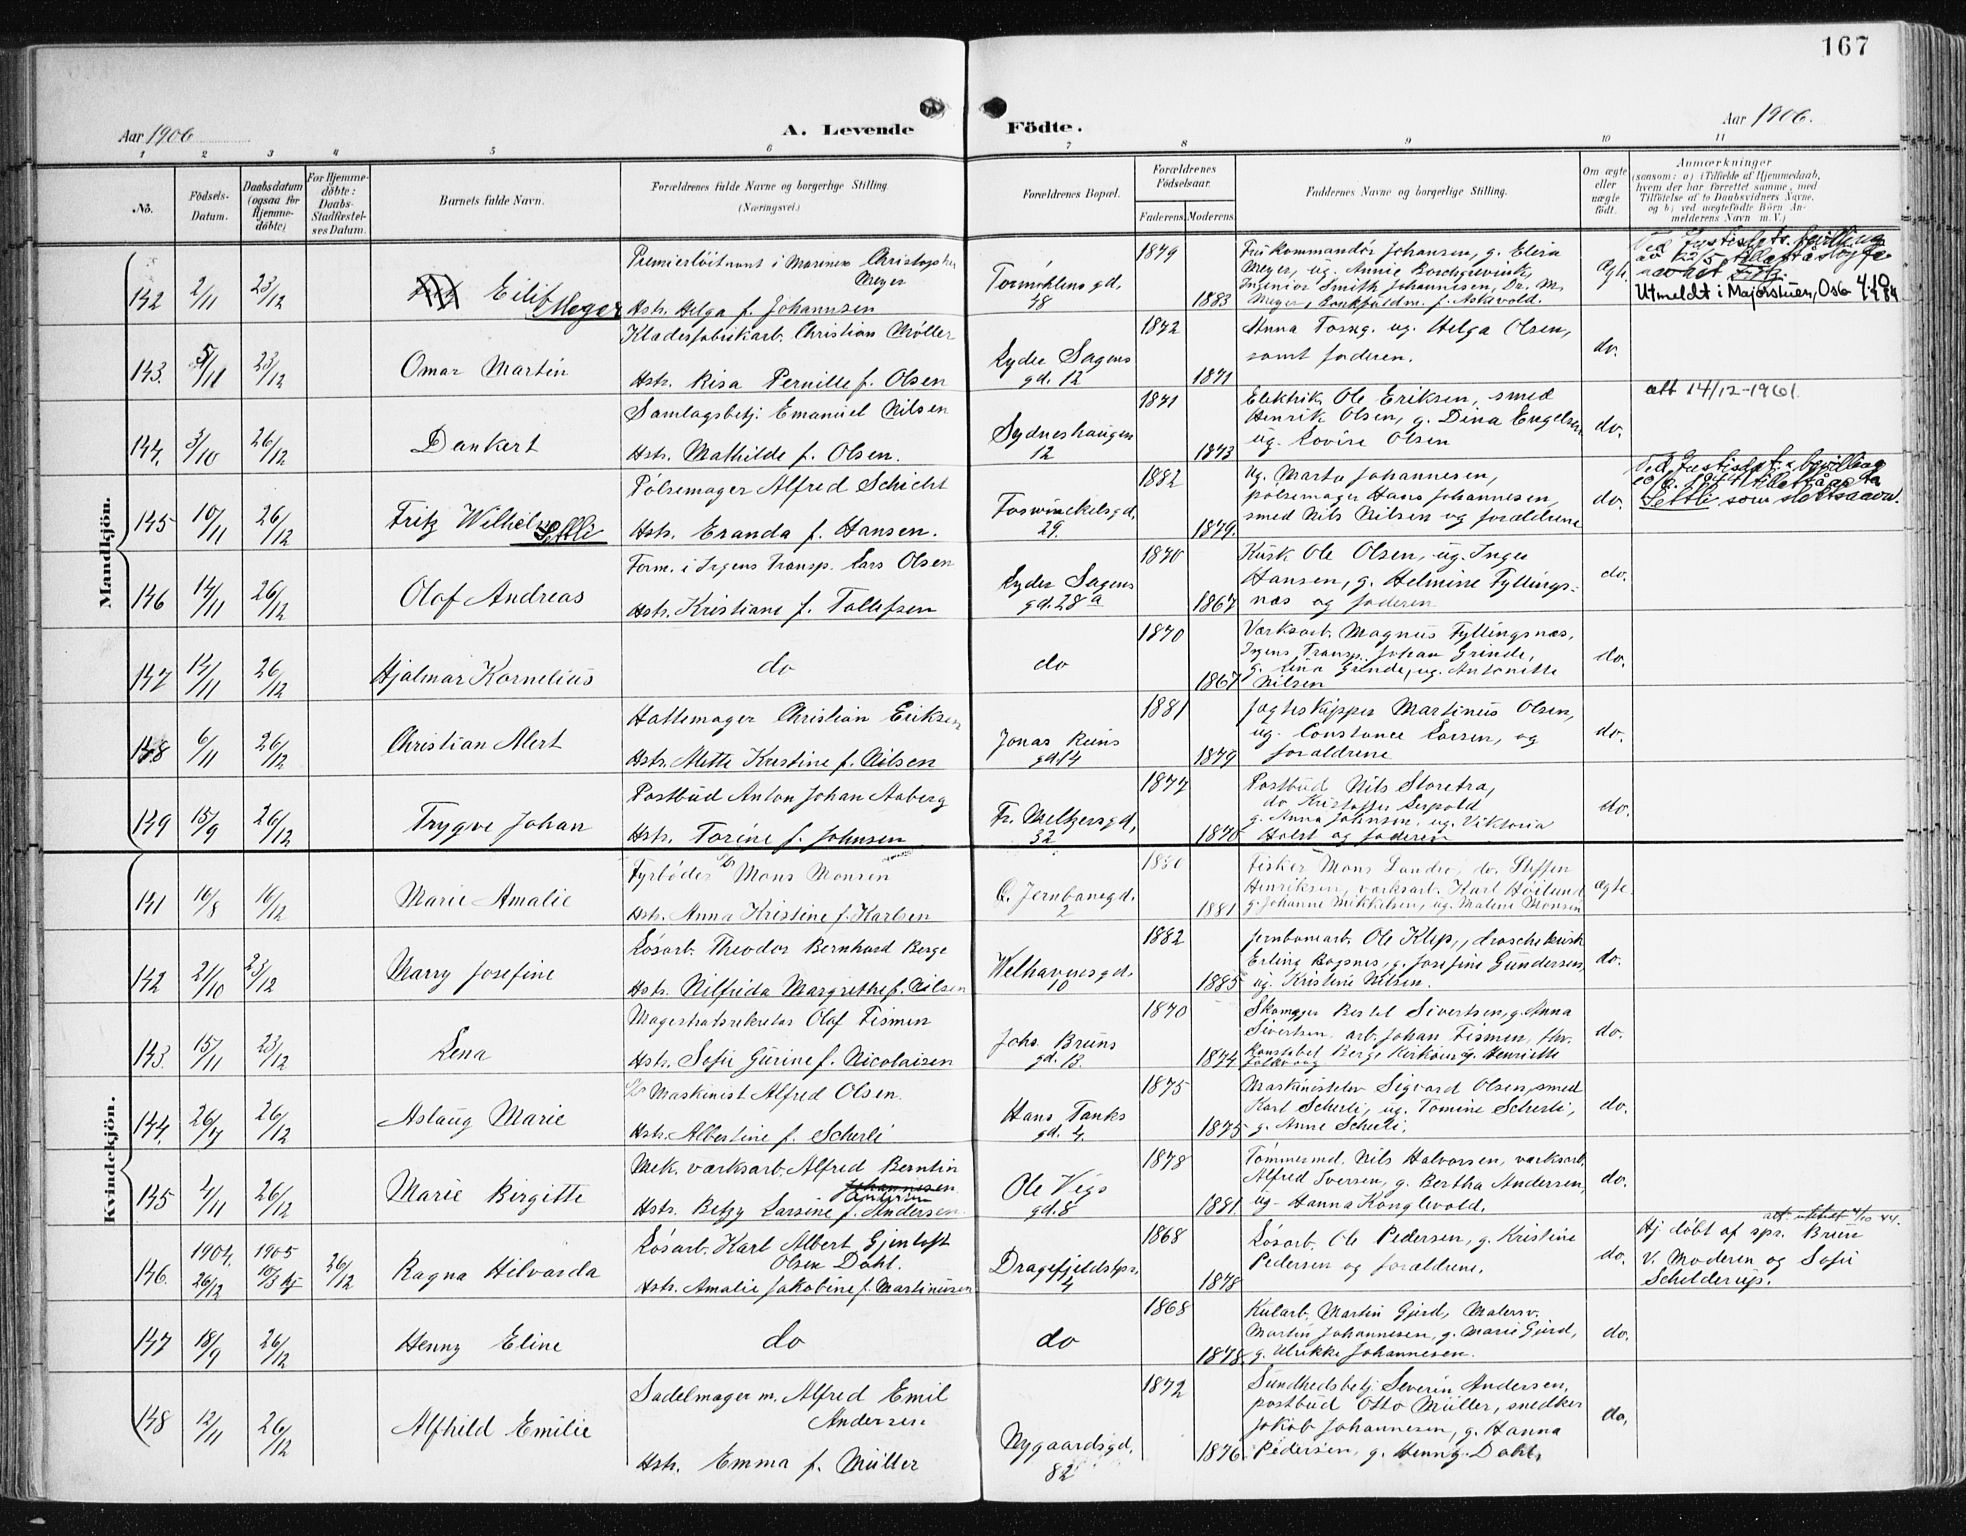 167
Aar 1906
A. Levende Födte.
Aar 1906.
1 2 3 4 5 6 7 8 9 10 11
No.
Födsels-
Datum.
Daabsdatum
(ogsaa for
Hjemme-
döbte)
For Hjemme-
döbte:
Daabs-
Stadfæstel-
ses Datum.
Barnets fulde Navn.
Forældrenes fulde Navne og borgerlige Stilling.
(Næringsvei.)
Forældrenes Bopæl.
Forældrenes
Födselsaar.
Faderens. Moderens.
Faddernes Navne og borgerlige Stilling.
Om ægte
eller
uægte
födt.
Anmærkninger
(saasom: a) i Tilfælde af Hjemmedaab,
hvem der har forrettet samme, med
Tilföielse af to Daabsvidners Navne,
og b) ved uægtefödte Börn An-
melderens Navn m. V.)
Mandkjön.
142 2/11 23/12 Eilif Meyer
Premierlöitnant i Marinen Christopher
Meyer
Hstr. Helga f. Johannsen
Tormöhlens gd.
48
1879 1883
Fru Kommandör Johansen, g. Elisa
Meyer, ug. Annie Borchgrevink,
Ingeniör Smith Johannesen, Dr. M.
Meyer, f. Askvold.
Ægt.
Utmeldt i Majorstuen, Oslo
143. 5/11 23/12 Omar Martin
Klædesfabrikarb. Christian Möller
Hstr. Risa Pernille f. Olsen
Lyder Sagens
gd. 12
1872 1871
Anna Torsg. ug. Helga Olsen,
samt faderen.
do.
att 14/12-1961.
144. 3/10 26/12 Dankert
Samlagsbetj. Emanuel Nilsen
Hstr. Mathilde f. Olsen.
Sydneshaugen
12
1871 1873
Elektrik. Ole Eriksen, smed
Henrik Olsen, g. Dina Engelsen,
ug. Lovise Olsen
do.
145 10/11 26/12 Fritz Wilhelm Settli
Pölsemager Alfred Schicht
Hstr. Eranda f. Hansen.
Torvinckelsgd.
29.
1882 1879.
ug. Marta Johannesen,
pölsemager Hans Johannesen,
smed Nils Nilsen og forældrene
do.
Ved Justisdet.s bevilling
Settli som slektsnavn.
146 14/11 26/12 Olaf Andreas
Form. i Irgens Transp. Lars Olsen
Hstr. Kristiane f. Tollefsen
Lyder Sagens
gd. 28 a
1870 1867
Kusk Ole Olsen, ug. Inga
Hansen, g. Helmine Fyllings-
næs og faderen
do.
147 14/11 26/12 Hjalmar Kornelius
do
do
1870 1867
Værksarb. Magnus Fyllingsnæs,
Irgens Transp. Johan Grinde,
g. Lina Grinde, ug. Antonette
Nilsen
do.
148 6/11 26/12 Christian Alert
Hattemager Christian Eriksen
Hstr. Mette Kristine f. Nilsen
Jonas Reins
gd. 14
1881 1879
Jagtskipper Martinus Olsen,
ug. Constance Larsen, og
forældrene
do.
149 15/9 26/12 Trygve Johan
Postbud Anton Johan Aaberg
Hstr. Torine f. Johnsen
Fr. Meltzersgd.
32
1877 1870
Postbud Nils Storetra,
do Kristoffer Leypold
g. Anna Johnson, ug. Viktoria
Holst og faderen
do.
Kvindekjön.
141 16/8 16/12 Marie Amalie
Fyrböder Mons Monsen
Hstr. Anna Kristine f. Karlsen
Ö. Jernbanegd.
2
1880 1881
Fisker Mons Sandre, do. Steffen
Henriksen, værksarb. Karl Höilund
g. Johanne Mikkelsen, ug. Malene Monsen
ægte
142 21/10 23/12 Marry Josefine
Lösarb. Theodor Bernhard Berge
Hstr. Nilfrida Margrethe f. Nilsen
Welhavensgd.
10
1882 1885
Jernbanearb. Ole Klep, droschekusk
Erling Bognes, g. Josefine Gundersen,
ug. Kristine Nilsen.
do.
143. 15/11 23/12 Lena
Magistratssekretær Olaf Tismen
Hstr. Sofie Gurine f. Nicolaisen
Johs. Bruns
gd. 13.
1870 1874
Skomager Bertel Sivertsen, g. Anna
Sivertsen, arb. Johan Tismen, fhv.
Konstabel Berge g. Henriette
do.
144. 26/7 26/12 Aslaug Marie
Maskinist Alfred Olsen.
Hstr. Albertine f. Scherli
Hans Tanks
gd. 4.
1875 1875
Maskinistelev Sigvard Olsen, smed
Karl Scherli, ug. Tomine Scherli,
g. Anne Scherli.
do.
145 4/11 26/12 Marie Birgitte
Mek. værksarb. Alfred Berntin
Johannesen
Hstr. Betzy Larsine f. Andersen.
Ole Vigs
gd. 8
1878 1881.
Tömmermd. Nils Halvorsen, værksarb.
Alfred Iversen, g. Bertha Andersen,
ug. Hanna Konglevold.
do.
146. 1904. 26/12 1905 10/3 hj 26/12 Ragna Hilvarda
Lösarb. Karl Albert Gjentoft
Olsen Dahl.
Hstr. Amalie Jakobine f. Martinusen
Dragefjeldstpr.
4
1868 1878
Lösarb. Ole Pedersen, g. Kristine
Pedersen og forældrene.
do.
Hj. döbt af spr. Bruun
v. Moderen og Sofie
Schilderup.
147 18/9 26/12 Henny Eline
do
do
1868 1878
Kularb. Martin Gjerd, Malersv.
Martin Johannesen, g. Marie Gjerd,
g. Ulrikke Johannesen.
do.
148 12/11 26/12 Alfhild Emilie
Sadelmager m. Alfred Emil
Andersen
Hstr. Emma f. Müller
Nygaardsgd.
82
1872 1876
Sundhedsbetj. Severin Andersen,
postbud Otto Müller, snedker
Jakob Johannesen, g. Hanna
Pedersen, g. Henny Dahl.
do.